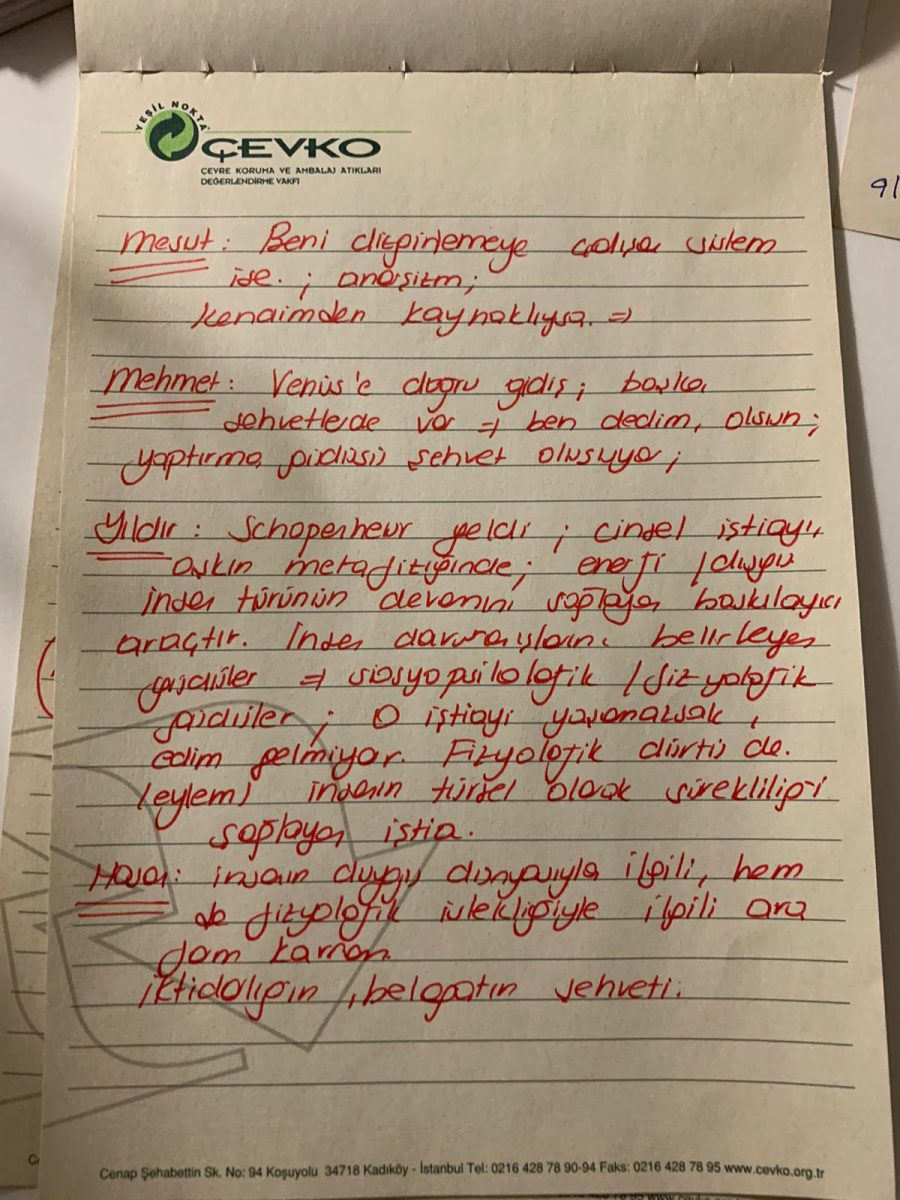 YEŞİL NOKTA
ÇEVKO
ÇEVRE KORUMA VE AMBALAJ ATIKLARI
DEĞERLENDİRME VAKFI
91
Mesut: Beni disiplinlemeye çalışan sistem
ise.; anarşizm;
kenaimden kaynaklıysa. ⇒
Mehmet: Venüs'e doğru gidiş; başka
şehvetlerde var ⇒ ben dedim, olsun;
yaptırma güdüsü şehvet oluşuyor;
Yıldır: Schopenheur geldi; cinsel iştiayı,
aşkın metafiziğinde; enerji / duygu
insan türünün devamını sağlayan baskılayıcı
araçtır. İnsan davranışlarını belirleyen
güdüler ⇒ sosyopsikolojik / fizyolojik
güdüler; O iştiayı yaşamazsak,
edim gelmiyor. Fizyolojik dürtü de.
(eylem) insanın türsel olarak sürekliliği
sağlayan iştia.
insanın duygu dünyasıyla ilgili, hem
de fizyolojik istekliliğiyle ilgili ara
iktidarlığın, belagatın şehveti.
Cenap Şehabettin Sk. No: 94 Koşuyolu 34718 Kadıköy - İstanbul Tel: 0216 428 78 90-94 Faks: 0216 428 78 95 www.cevko.org.tr